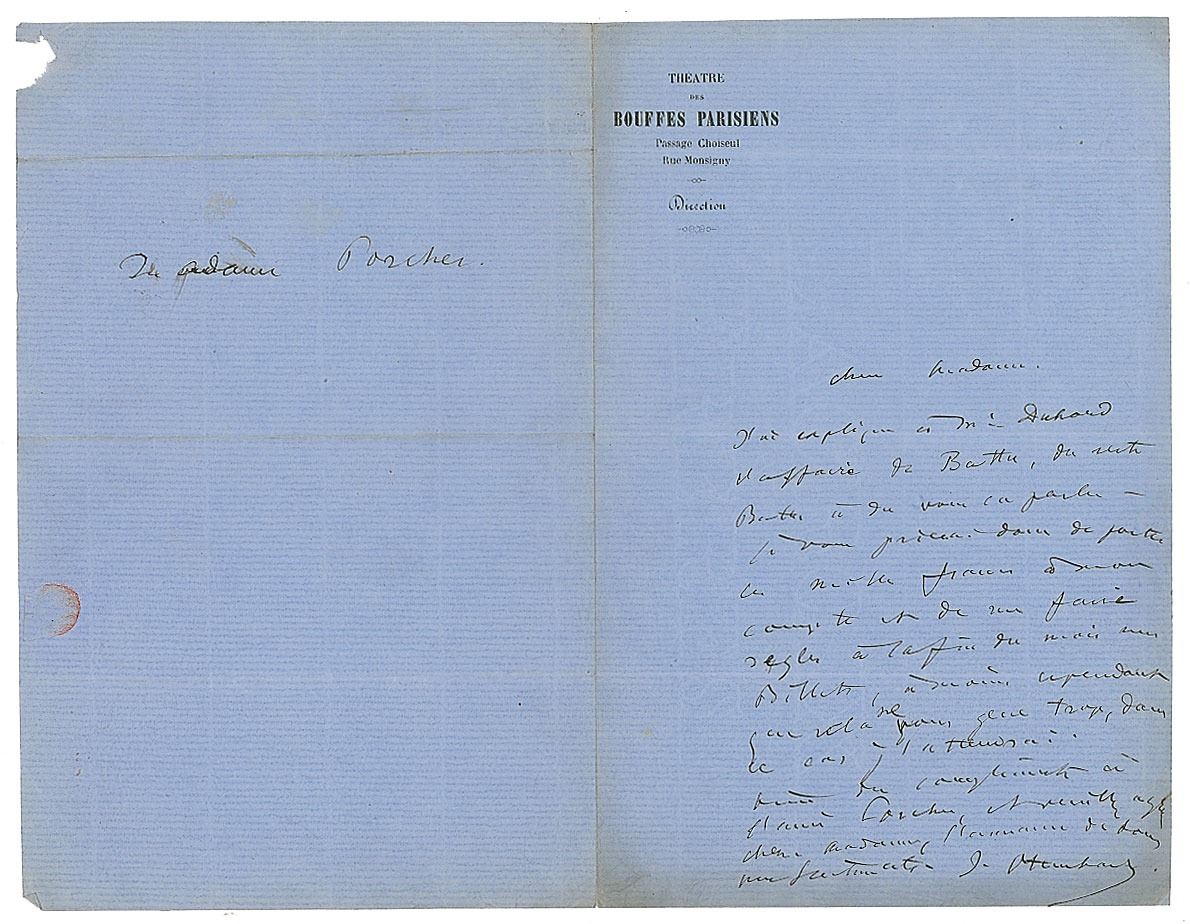 madame Porcher.
THEATRE
DES
BOUFFES PARISIENS
Passage Choiseul
Rue Monsigny
Direction
chere Madame.
J'ai expliqué à Mr Duhard
l'affaire de Battu, du reste
Battu a du vous en parler –
je vous prierai donc de porter
les mille francs à mon
compte et de me faire
regler à la fin du mois mes
Billets, à moins cependant
que cela ne vous gene trop, dans
ce cas j'attendrai.
bien des compliments à
l'ami Porcher, et veuillez agréer
chere madame, l'assurance de tous
mes sentiments J. Offenbach.